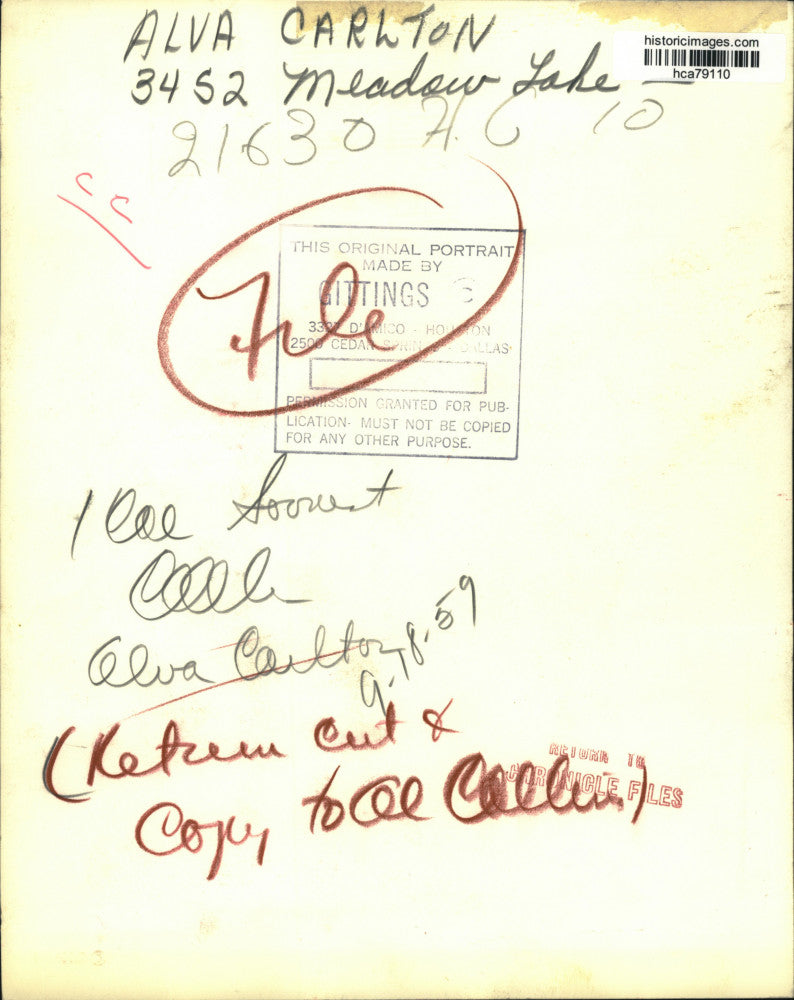 ALVA CARLTON
historicimages.com
hca79110
3452 Meadow Lake
21630 H.C 10
CC
THIS ORIGINAL PORTRAIT
MADE BY
GITTINGS
File
D'AMICO - HOUSTON
2500 CEDAR SPRINGS DALLAS
PERMISSION GRANTED FOR PUB-
LICATION- MUST NOT BE COPIED
FOR ANY OTHER PURPOSE.
1 Col
Alva Carlton
9.18.59
(Return cut &
Copy to Al Collins)
RETURN TO
CHRONICLE FILES